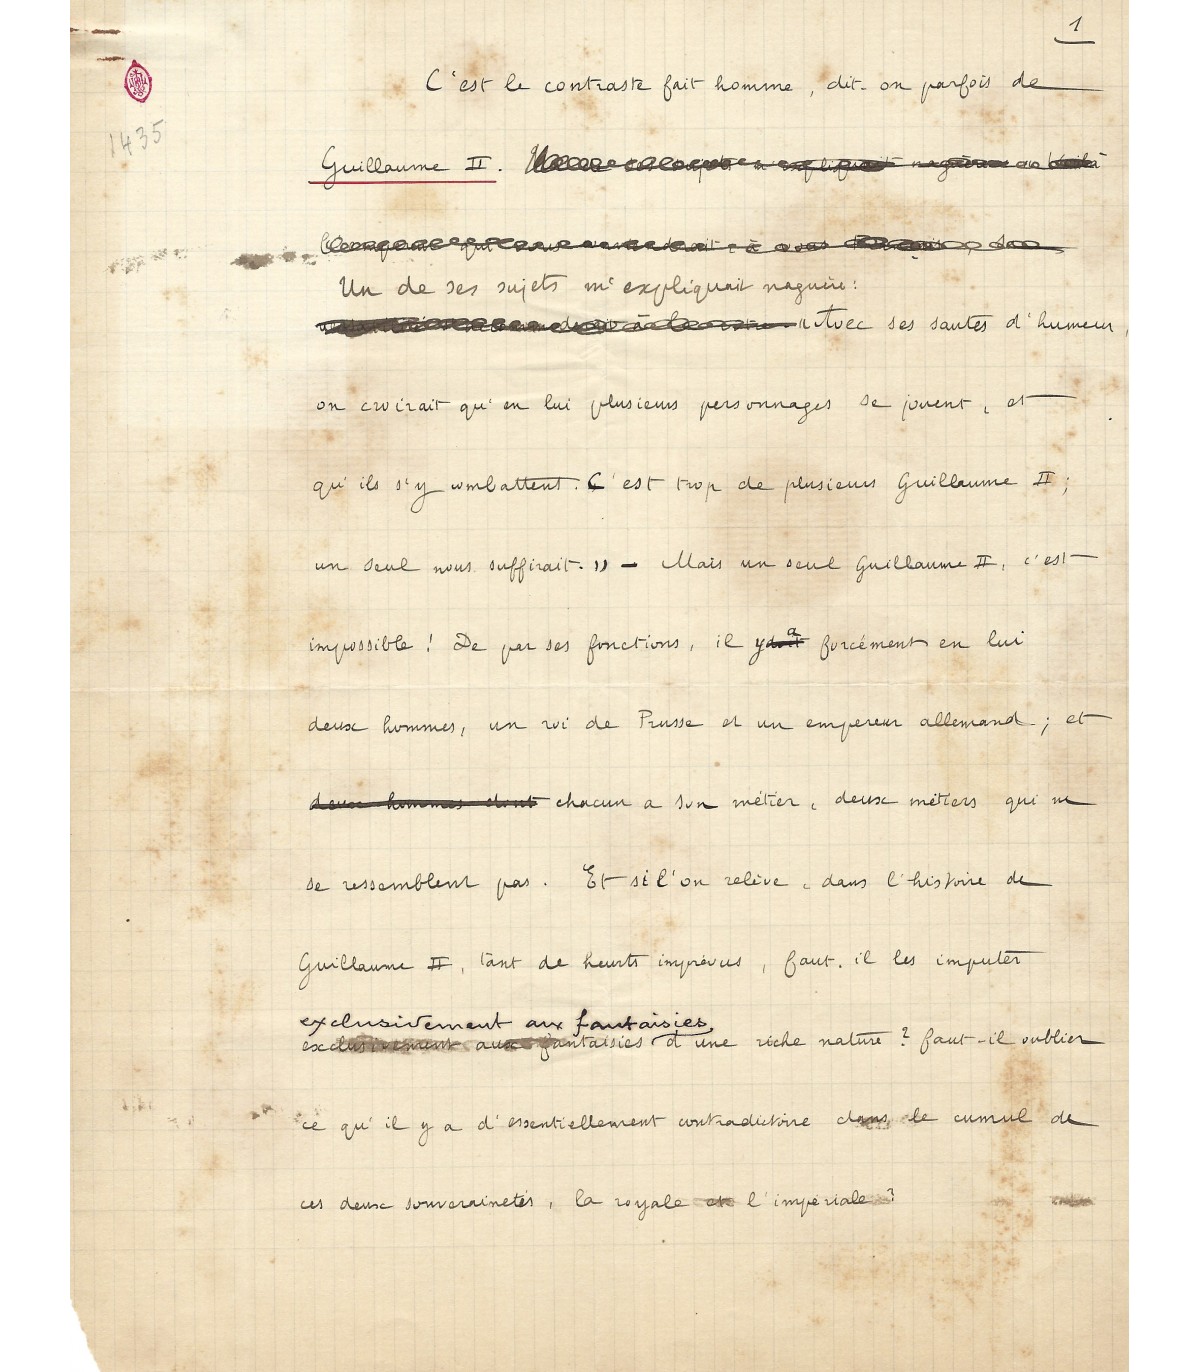 1
C'est le contraste fait homme, dit-on parfois de
1435
Guillaume II.
Un de ses sujets m'expliquait naguère :
« Avec ses sautes d'humeur,
on croirait qu'en lui plusieurs personnages se jouent, et
qu'ils s'y combattent. C'est trop de plusieurs Guillaume II ;
un seul nous suffirait. » – Mais un seul Guillaume II, c'est
impossible ! De par ses fonctions, il y a forcément en lui
deux hommes, un roi de Prusse et un empereur allemand ; et
deux hommes dont chacun a son métier, deux métiers qui ne
se ressemblent pas. Et si l'on relève, dans l'histoire de
Guillaume II, tant de heurts imprévus, faut-il les imputer
exclusivement aux fantaisies
exclusivement aux fantaisies d'une riche nature ? faut-il oublier
ce qu'il y a d'essentiellement contradictoire dans le cumul de
ces deux souverainetés, la royale et l'impériale ?